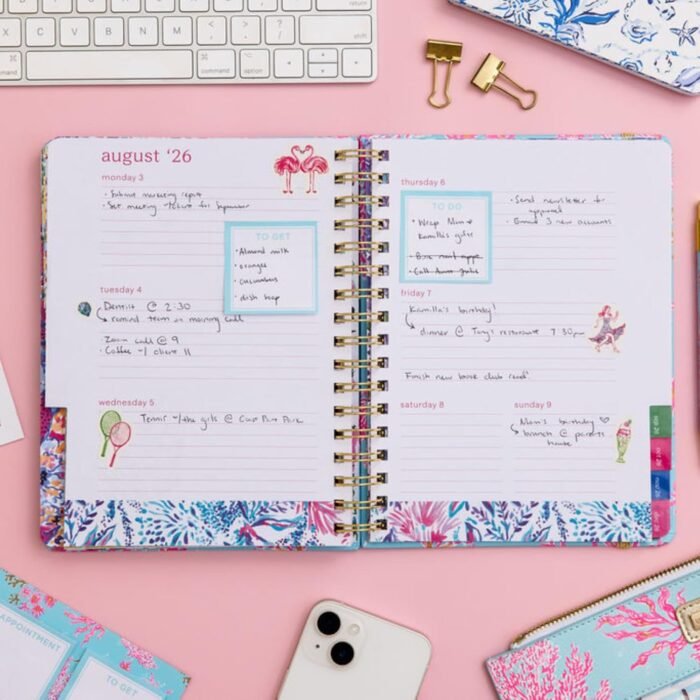 return
shift
Z
X
C
V
B
N
M
<
,
>
.
?
/
shift
command
command
option
august '26
monday 3
• Submit marketing report
• Set meeting for September
TO GET
• Almond milk
• oranges
• cucumbers
• dish soap
tuesday 4
Dentist @ 2:30
remind team on morning call
• Zoom call @ 9
• Coffee w/ client 11
wednesday 5
Tennis w/ the girls @ Park
thursday 6
TO DO
• Wrap Mom +
Kamilla's gifts
• Book nail appt
• Call Aunt
• Send newsletter for
approval
• Email 3 new accounts
friday 7
Kamilla's birthday!
dinner @ Tony's restaurant 7:30pm
Finish new book club read!
saturday 8
sunday 9
Mom's birthday ♡
brunch @ parents
house
sep 26
oct 26
nov 26
APPOINTMENT
TO GET